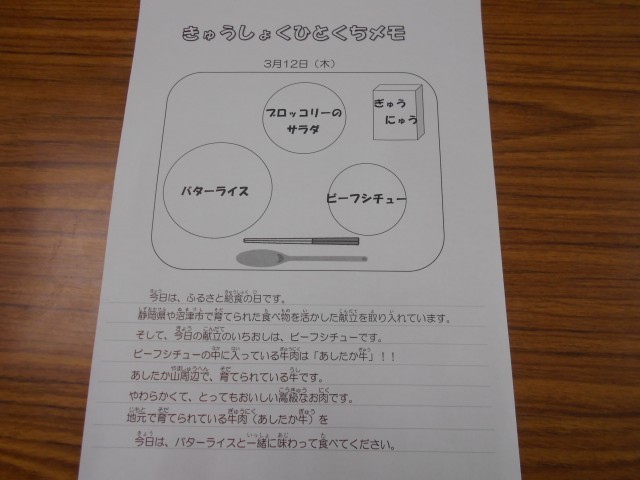 きゅうしょくひとくちメモ
3月12日（木）
ブロッコリーの
サラダ
ぎゅう
にゅう
バターライス
ビーフシチュー
今日は、ふるさと給食の日です。
静岡県や沼津市で育てられた食べ物を活かした献立を取り入れています。
そして、今日の献立のいちおしは、ビーフシチューです。
ビーフシチューの中に入っている牛肉は「あしたか牛」！！
あしたか山周辺で、育てられている牛です。
やわらかくて、とってもおいしい高級なお肉です。
地元で育てられている牛肉（あしたか牛）を
今日は、バターライスと一緒に味わって食べてください。